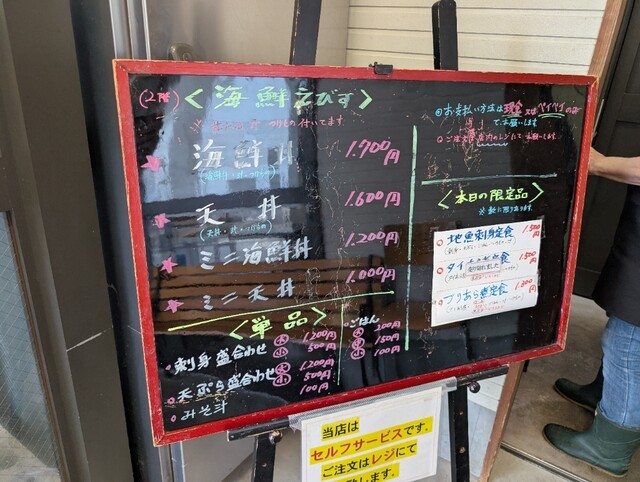 (2階) <海鮮えびす>
つけもの 付いています
★ 海鮮丼 1.700円
★ 天丼 1.600円
★ ミニ海鮮丼 1.200円
★ ミニ天丼 1.000円
<単品>
刺身盛合わせ 大 1.200円
小 500円
天ぷら盛合わせ 大 1.200円
小 500円
みそ汁 100円
ごはん
大 200円
中 150円
小 100円
◎お支払い方法は現金又はペイペイのみ
でお願いします
ご注文は店内のレジにてお願いします
<本日の限定品>
※数に限り有ります。
地魚刺身定食 1.500円
タイ 定食 1.500円
売り切れました
ブリあら煮定食 1.300円
当店は
セルフサービスです。
ご注文はレジにて